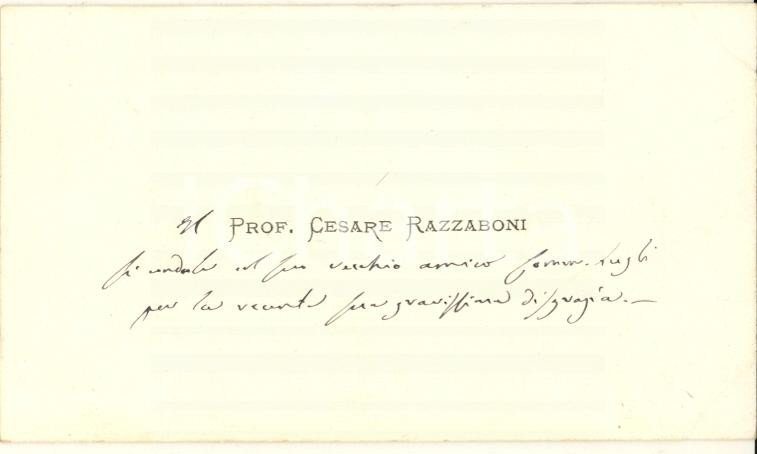 Il PROF. CESARE RAZZABONI
si conduole col suo vecchio amico Comm. Lugli
per la recente sua gravissima disgrazia.—